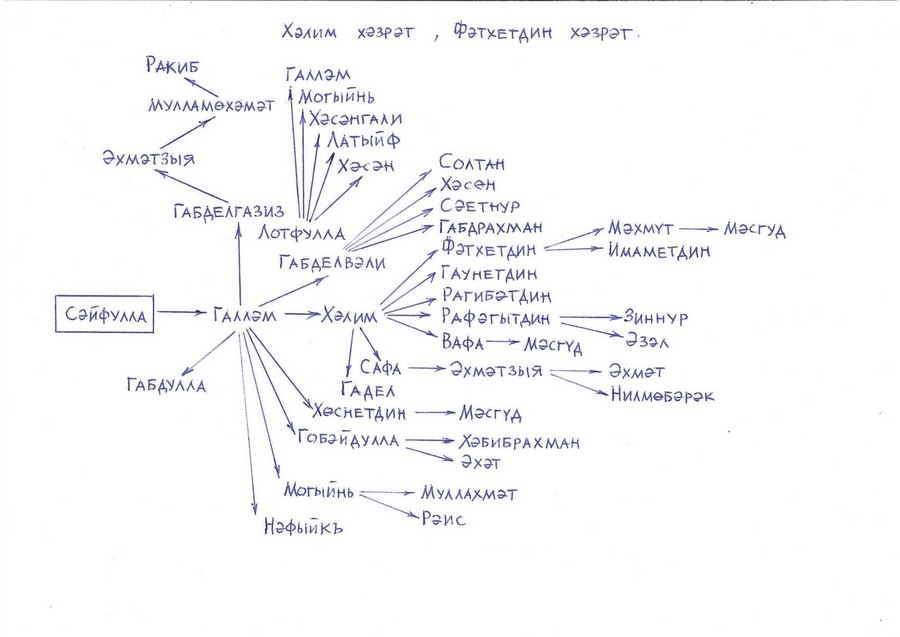 Хәлим хәзрәт , Фәтхетдин хәзрәт.
Ракиб
Галләм
Мулламөхәмәт
Могыйнь
Хәсәнгали
Латыйф
Әхмәтзыя
Хәсән
Солтан
Хәсән
Сәетнур
Габделгазиз
Лотфулла
Габдрахман
Мәхмүт
Мәсгуд
Фәтхетдин
Имаметдин
Габделвәли
Гаунетдин
Рагибәтдин
Сәйфулла
Галләм
Хәлим
Рафәгытдин
Зиннур
Вафа
Мәсгүд
Әзәл
Сафа
Әхмәтзыя
Әхмәт
Габдулла
Гадел
Нилмөбәрәк
Хөснетдин
Мәсгүд
Гобәйдулла
Хәбибрахман
Әхәт
Могыйнь
Муллахмәт
Рәис
Нәфыйкъ